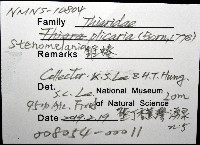 NMNS-16804
Family Thiaridae
Thiara plicaria (Born, 1778)
Stenomelania
Remarks
Collector K.S. Lee & H.T. Hung.
Det. S.C. Lee. National Museum 20m
95m Alt. Fresh of Natural Science
Date 2019.2.19
n:5
008054-00011